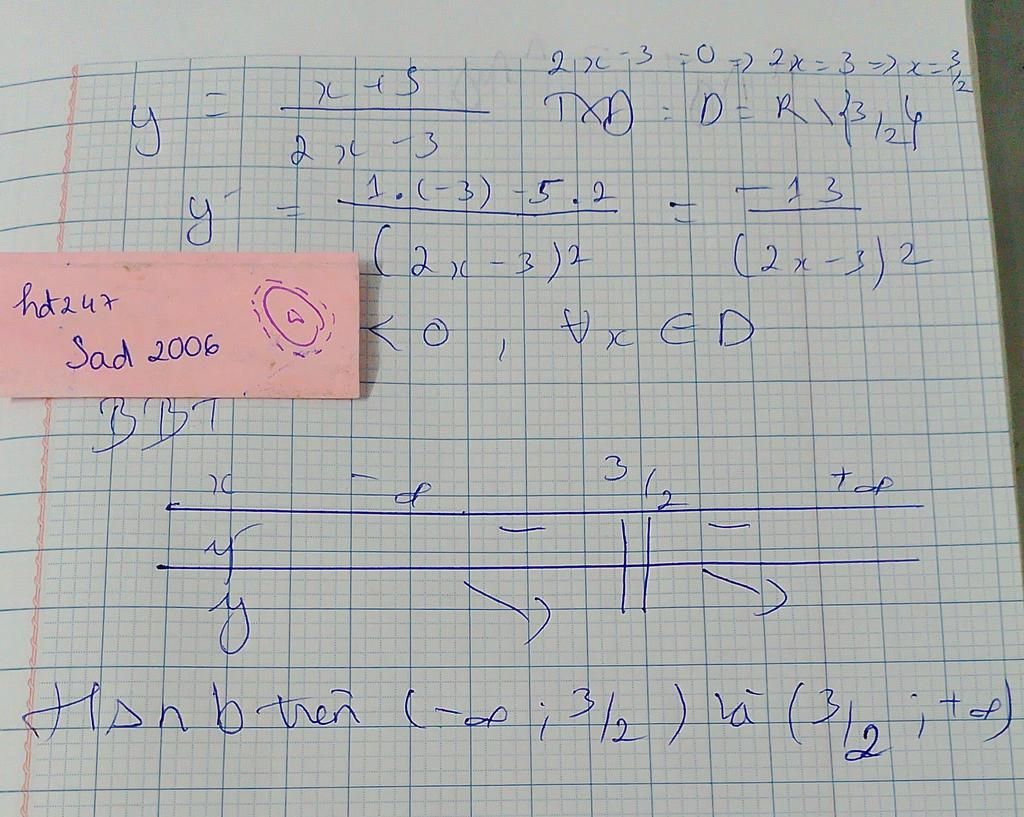 2x - 3 = 0 => 2x = 3 => x = 3/2
y = (x + 5)/(2x - 3) TXĐ : D = R \ {3/2}
y' = (1.(-3) - 5.2)/(2x - 3)2 = -13/(2x - 3)2
hdt247
Sad 2006
< 0 , ∀x ∈ D
BBT
x -∞ 3/2 +∞
y' - || -
y ↘ || ↘
trên (-∞ ; 3/2) và (3/2 ; +∞)